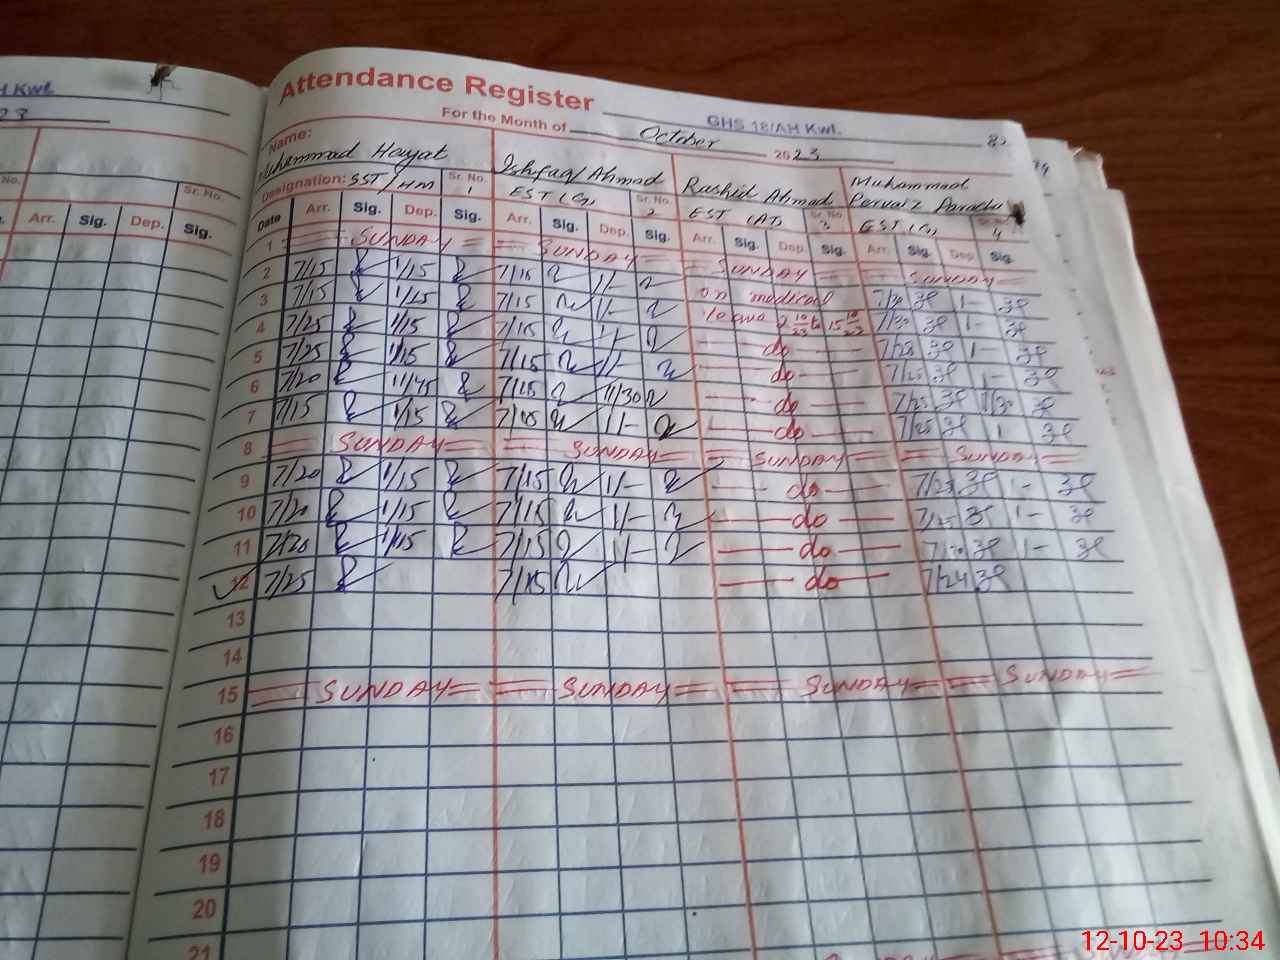 H Kwl.
23
Attendance Register
GHS 18/AH Kwl.
For the Month of October 2023
82
Name:
Muhammad Hayat Ishfaq Ahmad Rashid Ahmad Muhammad Pervaiz Paracha
Designation: SST/HM Sr. No. 1 EST (G) Sr. No. 2 EST (AT) Sr. No. 3 EST (G) 4
No. Sr. No.
Arr. Sig. Dep. Sig.
Date Arr. Sig. Dep. Sig. Arr. Sig. Dep. Sig. Arr. Sig. Dep. Sig. Arr. Sig. Dep. Sig.
1 SUNDAY SUNDAY SUNDAY SUNDAY
2 7/15 1/15 7/15 1/- on medical 7/30 1-
3 7/15 1/15 7/15 1/- leave 2 10/23 to 15 10/23 7/30 1-
4 7/25 1/15 7/15 1/- do 7/28 1-
5 7/25 1/15 7/15 1/- do 7/25 1-
6 7/20 11/45 7/15 11/30 do 7/25 11/30
7 7/15 1/15 7/15 1/- do 7/25 1
8 SUNDAY SUNDAY SUNDAY SUNDAY
9 7/20 1/15 7/15 1/- do 7/25 1-
10 7/20 1/15 7/15 1/- do 7/25 1-
11 7/20 1/15 7/15 1/- do 7/20 1-
12 7/25 7/15 do 7/24
13
14
15 SUNDAY SUNDAY SUNDAY SUNDAY
16
17
18
19
20
21
12-10-23 10:34